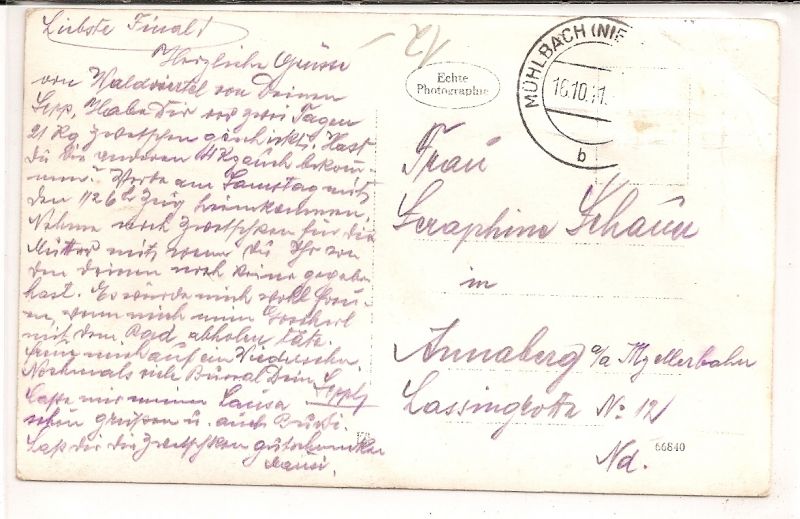 Liebste Final!
Herzliche Grüsse
von Waldviertel von Deinen
Sepp. Habe Dir vor zwei Tagen
21 Kg Zwetschken geschickt. Hast
du die anderen 11 Kg auch bekom-
men? Werde am Samstag mit
den 1126 Zug heimkommen.
Nehme noch Zwetschken für die
Mutter mit, wenn du Ihr von
den deinen noch keine gegeben
hast. Es würde mich wohl freu-
en, wenn mich mein
mit dem Rad abholen täte.
Freu mich auf ein Wiedersehn.
Nochmals viele Bussal Dein Seppl
Lasse mir meine
schön grüßen u. auch Burli.
Laß dir die Zwetschken gutschmecken
12
Echte
Photographie
MÜHLBACH (NIE
16.10.41.
b
Frau
Seraphine Schauer
in
Annaberg a/a Mzellerbahn
Lassingrotte No 12
Nd.
66840